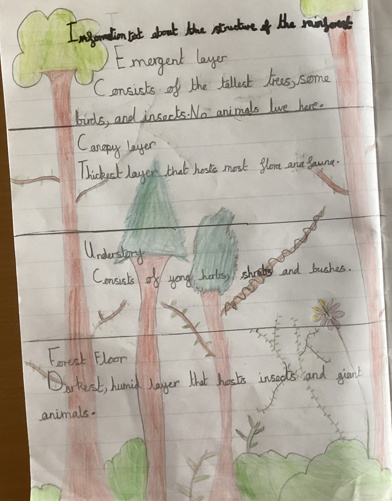 Information text about the structure of the rainforest
Emergent layer
Consists of the tallest trees, some
birds, and insects. No animals live here.
Canopy layer
Thickest layer that hosts most flora and fauna.
Understory
Consists of yong herbs, shrubs and bushes.
Forest Floor
Darkest, humid layer that hosts insects and giant
animals.